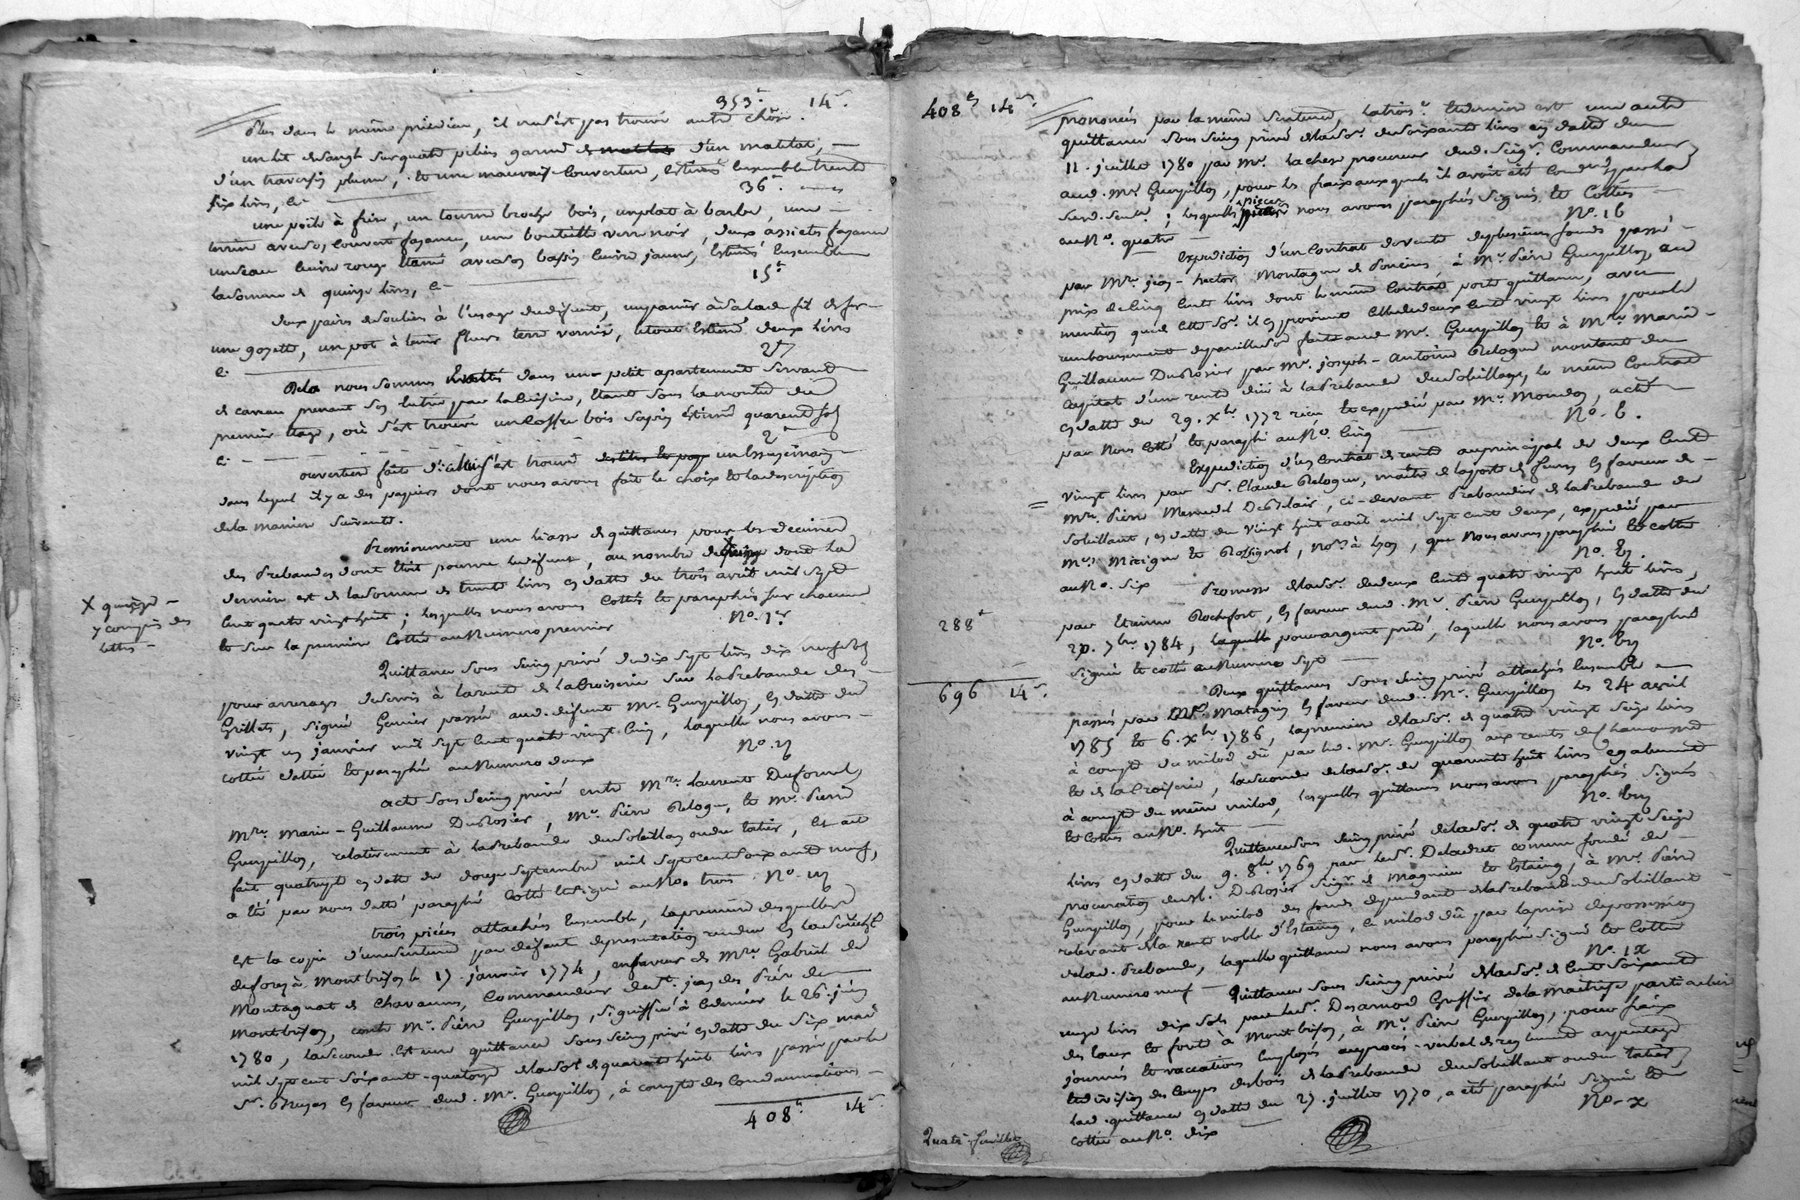 353ᵗ 14ˢ.
Plus dans le même placard, il ne s'est pas trouvé autre chose.
un lit de sangle sur quatre piliés garni de d'un matelat, —
d'un traversin plume, et une mauvaise Couverture, estimés Ensemble trente
six livres, Cy — 36ᵗ
une poële à frire, un tourne broche bois, un plat à barbe, une —
couvert fayance, une bouteille verre noir, deux assietes fayance
un seau cuivre rouge bassin cuivre jaune, Estimés Ensemble
la somme de quinze livres, Cy — 15ᵗ
deux paires de souliers à l'usage du défunt, un panier à salade fil de fer —
une un pot à tenir fleurs terre vernie, le tout Estimé deux livres
Cy — 2ᵗ
De la nous sommes dans un petit apartement servant
de caveau prenant son Entrée par la Cuisine, Etant sous la montée du
premier Etage, où s'est trouvé un Coffre bois sapin Estimé quarente sols
Cy — 2ᵗ
ouverture faite d'icelluy s'est trouvé un
dans lequel il y a des papiers dont nous avons fait le choix et la description
de la maniere suivante.
Premierement une liasse de quittances pour les decimes
des Prebandes dont Etoit pourvu le défunt, au nombre de dont la
derniere est de la somme de trente livres en datte du trois avril mil sept
Cent quatre vingt huit; lesquelles nous avons Cottés et paraphés sur chacune
X quinze —
y compris des
lettres —
et sur la premiere Cottée au Numero premier No. 1ᵉʳ
Quittance sous seing privé de dix sept livres dix neuf sols
pour arrerages de servis à la rente de la Croiserie sur la Prebande des —
Grillets, signé Genvier passée aud. défunt Mʳ. Guerpillon, en datte du
vingt un janvier mil sept Cent quatre vingt Cinq, laquelle nous avons —
cottée dattée et paraphée au Numero deux No. ij
acte sous seing privé entre Mʳᵉ Laurent Dufournel,
Mʳᵉ. Marie-Guillaume DuRosier, Mʳ. Pierre Relogue, et Mʳ. Pierre
Guerpillon, relativement à la Prebande du Soleillan ou du tatier, Cet acte
fait quatruple en datte du douze septembre mil sept cent soixante neuf,
a été par nous datté paraphé Cotté et signé au No. trois No. iij
trois piéces attachées Ensemble, la premiere desquelles
est la copie d'une sentence par défaut de presentation rendue En la
de forez à Montbrison le 17. janvier 1774, en faveur de Mʳᵉ Gabriel de
Montagnat de Chavannes, Commandeur de Sᵗ. jean des Prés de —
Montbrison, contre Mʳ. Pierre Guerpillon, signiffiée à Ce dernier le 26. juin
1780, la seconde est une quittance sous seing privé en datte du six mars
mil sept cent soixante-quatorze de la soe. de quarante huit livres passée par le
Sʳ. En faveur dud. Mʳ. Guerpillon, à compte des Condamnations —
408ᵗ 14ˢ.
408ᵗ 14ˢ.
prononcées par la même sentence, la troisᵉ. et derniere est une autre
quittance sous seing privé de la soᵉ. de soixante livres en datte du
11. juillet 1780 par Mʳ. Lachese procureur dud. seigʳ. Commandeur
aud. Mʳ. Guerpillon, pour les fraix auxquels il avoit été Condᵉ par lad.
; lesquelles pieces nous avons paraphés signés et Cottés —
au No. quatre No. 4
Expedition d'un Contrat de vente de plusieurs fonds passé —
par Mʳᵉ jean-hector Montagne de Poncins à Mʳ. Pierre Guerpillon, au
prix de Cinq Cent livres dont le même Contrat porte quittance, avec
mention que de cette soᵉ. il en provient Celle de deux Cent vingt livres pour le
remboursement de pareille soe. fait aud. Mʳ. Guerpillon et à Mʳᵉ Marie —
Guillaume DuRosier par Mʳ. joseph-Antoine Relogue montant du
Capital d'une rente due à la Prebande du Soleillan, le même Contrat
en datte du 29. Xbre 1772 reçu et expedié par Mᵉ. Mondon, acte
par Nous Cotté et paraphé au No. Cinq No. 5.
Expedition d'un Contrat de rente au principal de deux Cent
vingt livres par Sʳ. Claude Relogue, maitre de la poste de feurs En faveur de —
Mʳᵉ. Pierre Ci-devant Prebandier de la Prebande du
Soleillant, en datte du vingt huit août mil sept cent deux, expedié par
Mᵉˢ et Rossignol, Noʳᵉˢ à Lyon, que Nous avons paraphé et cotté
au No. six No. 6.
288ᵗ
Promesse de la soᵉ. de deux Cent quatre vingt huit livres,
par Etienne Rochefort, En faveur dud. Mʳ. Pierre Guerpillon, En datte du
20. 7bre 1784, laquelle pour argent preté, laquelle nous avons paraphé
signé et cotté au Numero sept — No. 7
696 14ˢ.
Deux quittances sous seing privé attachés Ensemble
passés par Mʳ. Matagrin En faveur dud. Mʳ. Guerpillon les 24 avril
1785 et 6. Xbre 1786, la premiere de la soᵉ. de quatre vingt seize livres
à compte du milod dû par led. Mʳ. Guerpillon aux rentes de
et de la Croiserie, la seconde de la soᵉ. de quarante huit livres egalement
à compte du même milod, lesquelles quittances nous avons paraphés signés
et Cottés au No. huit — No. 8
Quittance sous seing privé de la soᵉ. de quatre vingt seize
livres en datte du 9. 8bre 1769 par le Sʳ. comme fondé de —
procuration du Sʳ. DuRosier Seigʳ de Magnieu et Estaing, à Mʳ. Pierre
Guerpillon, pour le milod des fonds dependant de la Prebande du Soleillant —
relevant de la rente noble d'Estaing, Ce milod dû par la prise de possession
de lad. Prebande, laquelle quittance nous avons paraphé signé et Cotté
au Numero neuf — No. ix
Quittance sous seing privé de la soᵉ. de Cent soixante
onze livres dix sols par le Sʳ. Desarnod Greffier de la maitrise particuliere
des Eaux et forêts à Montbrison, à Mʳ. Pierre Guerpillon, pour fraix
journées et vaccations Employés au procès-verbal de reglement arpentage
et division des Coupes de bois de la Prebande du Soleillant ou du tatier,
lad. quittance en datte du 27. juillet 1770, a été paraphée signée et
Cottée au No. dix — No. x
Quatre feuillet